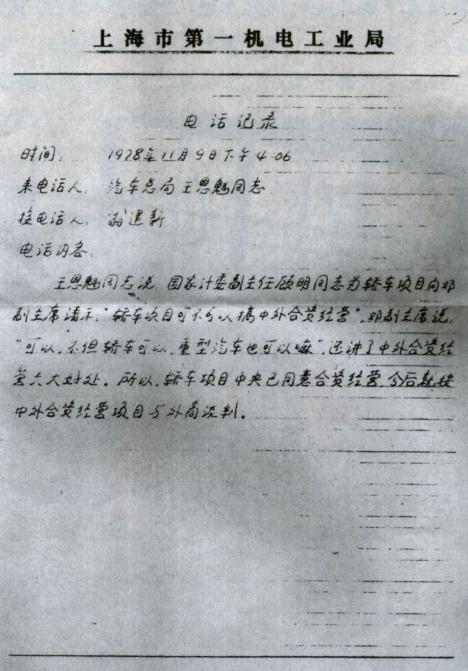 上海市第一机电工业局
电话记录
时间： 1978年11月9日下午4.06
来电话人：汽车总局王思魁同志
接电话人：翁建新
电话内容：
王思魁同志说，国家计委副主任顾明同志为轿车项目向邓
副主席请示："轿车项目可不可以搞中外合资经营"，邓副主席说，
"可以，不但轿车可以，重型汽车也可以嘛"，还讲了中外合资经
营六大好处。所以，轿车项目中央已同意合资经营，今后就按
中外合资经营项目与外商谈判。